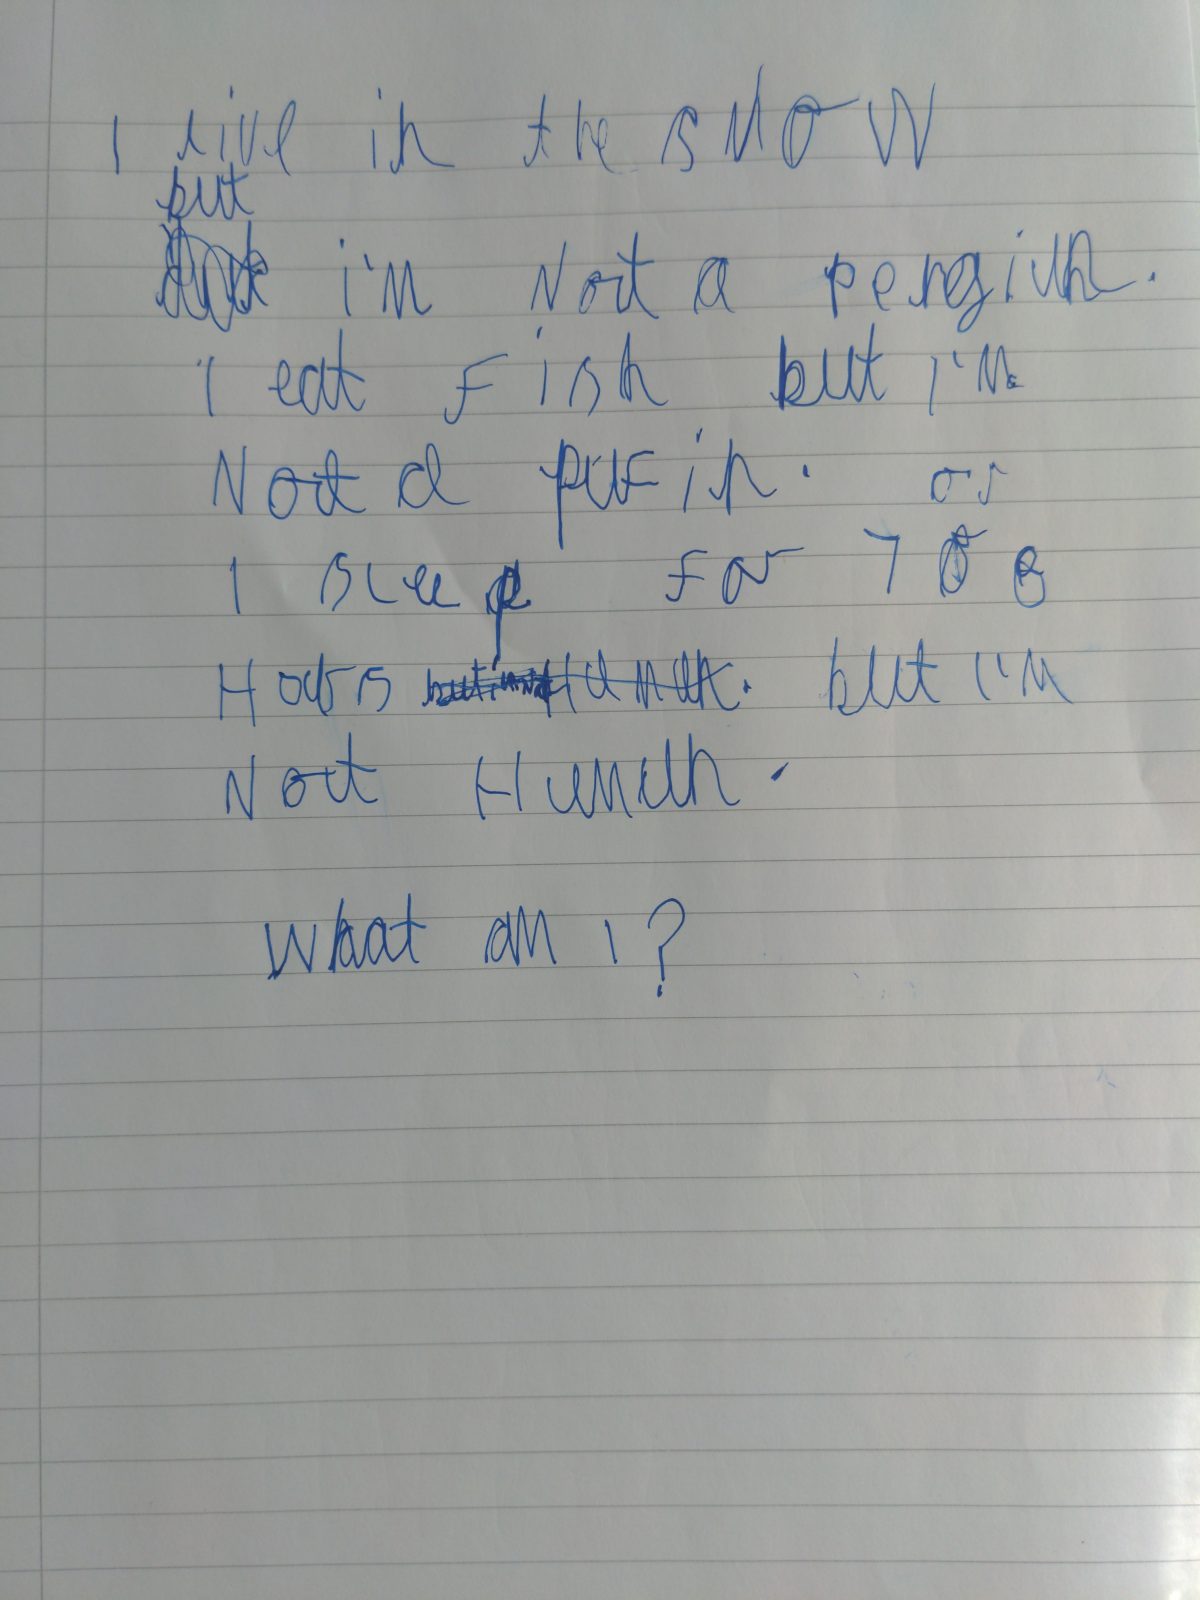 I live in the snow
but
i'm Not a pengiun.
I eat Fish but I'm
Not a pufin. or
I sleep for 7 8
Hours but I'm
Not Human.
What am I?